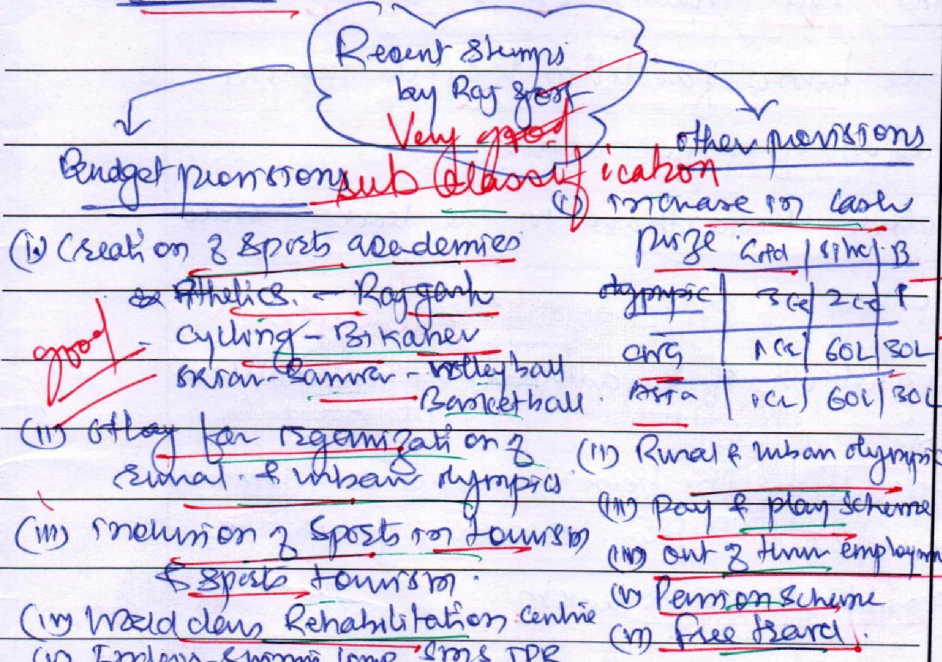 Recent Steps
by Raj govt
Very good
sub classification
Budget provisions
other provisions
(i) Creation of Sports academies
ex Athletics. - Rajgarh
- Cycling - Bikaner
- Volleyball
- Basketball.
good
(ii) outlay for reganization of
rural & urban olympics
(iii) inclusion of Sports in tourism
& Sports tourism.
(iv) World class Rehabilitation centre
(i) increase in cash
prize Gold | Silv | B
olympic 3Cr | 2Cr | 1
CWG 1Cr | 60L | 30L
Asia 1Cr | 60L | 30L
(ii) Rural & urban olympic
(iii) pay & play scheme
(iv) out of turn employm
(v) Pension scheme
(vi) free